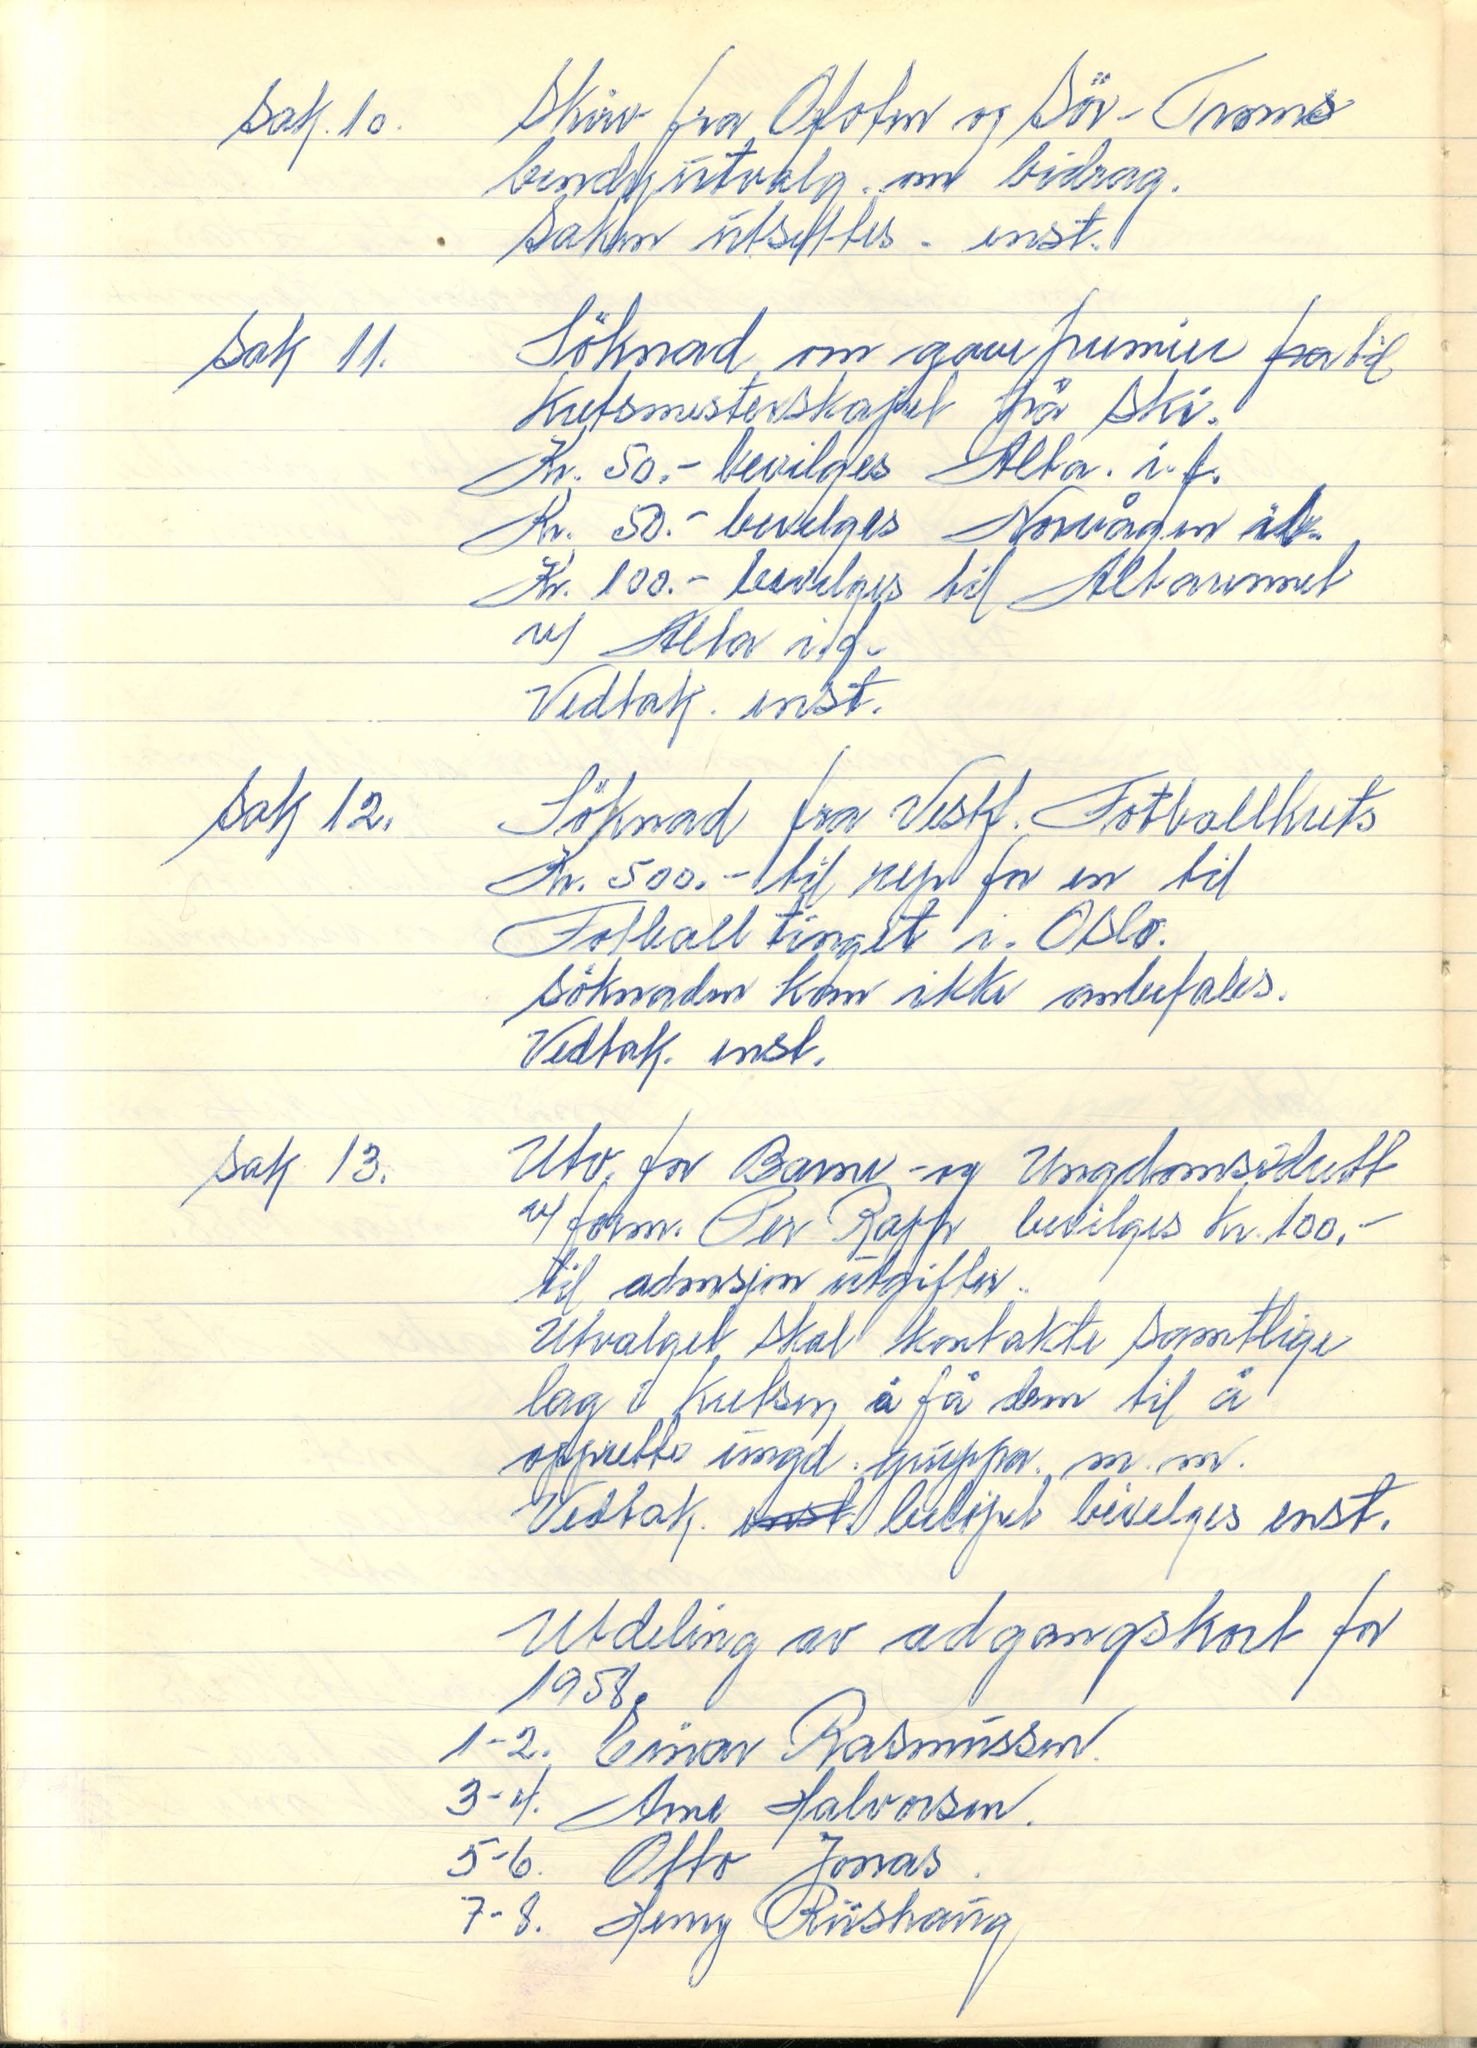 Sak. 10. Skriv fra Ofoten og Sör-Troms
bandyutvalg. om bidrag.
Saken utsettes. enst.
Sak 11. Söknad om gavepremier fra til
Kretsmesterskapet på ski.
Kr. 50.- bevilges Alta. i.f.
Kr. 50.- bevilges Norvågen
Kr. 100.- bevilges til Altarennet
v/ Alta i.f.
Vedtak. enst.
Sak 12. Söknad fra Vestf. Fotballkrets
Kr. 500.- til rep for en til
Fotballtinget i. Oslo.
Söknaden kan ikke anbefales.
Vedtak. enst.
Sak 13. Utv. for Barne- og Ungdomsidrett
v/ form. Per Rapp bevilges kr. 100.-
til admsjon utgifter.
Utvalget skal kontakte samtlige
lag i Kretsen, å få dem til å
opprette ungd. gruppa. m.m.
Vedtak. enst. belöpet bevilges enst.
Utdeling av adgangskort for
1958.
1-2. Einar Rasmussen.
3-4. Arne Halvorsen.
5-6. Otto Jonas.
7-8. Henry Riishaug